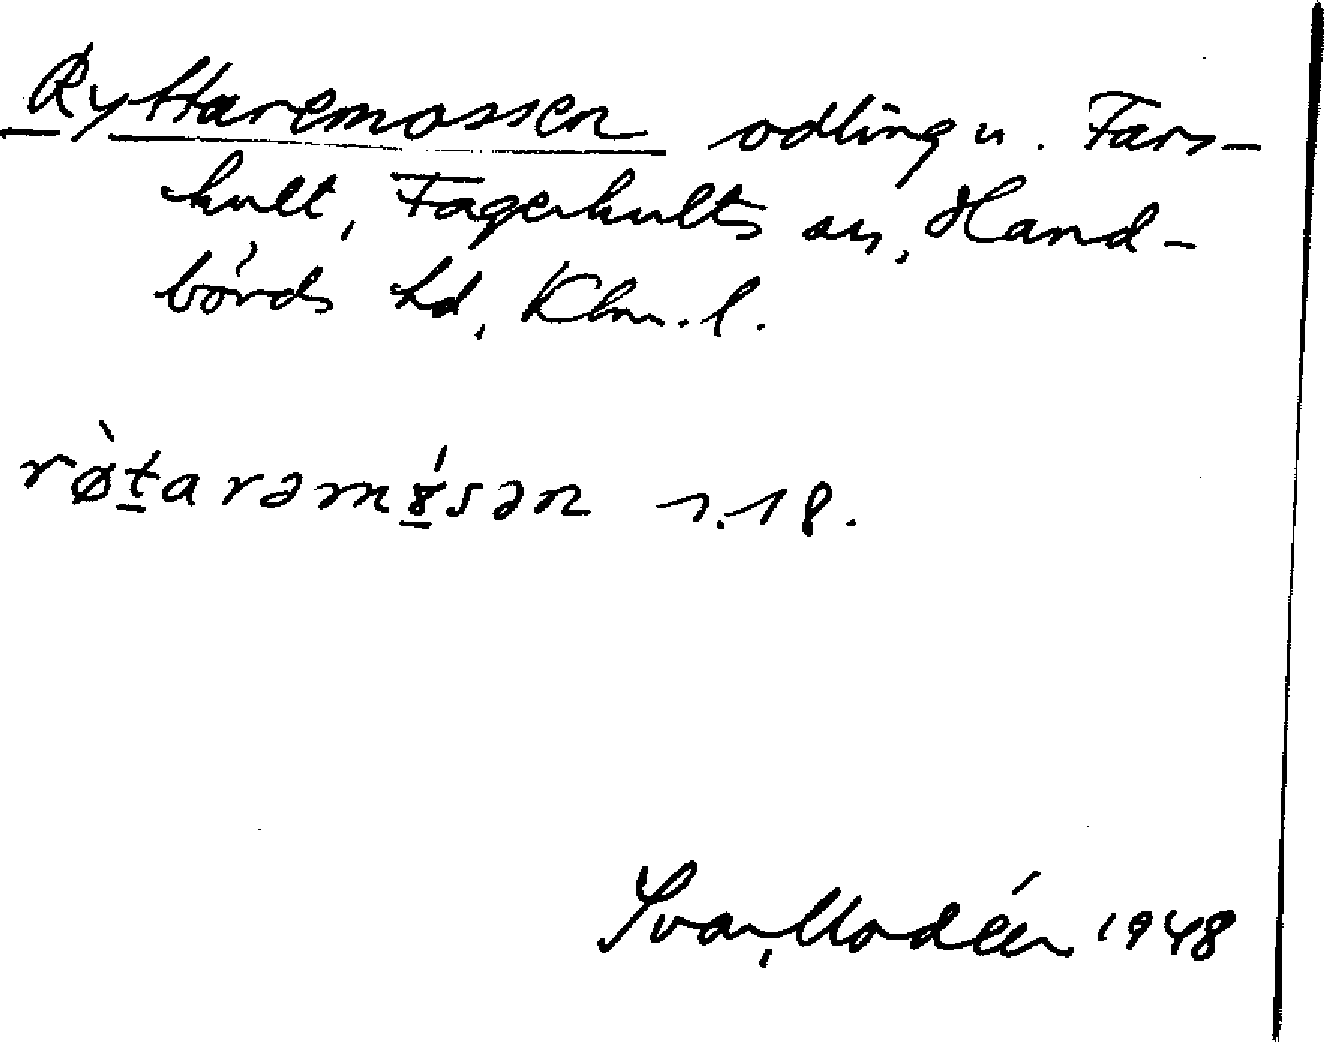 Ryttaremossen odling u. Fars-
hult, Fagerhults sn, Hand-
börds hd, Klm. l.
røt̲arəmɤ̲sən
Ivar Modéer 1948